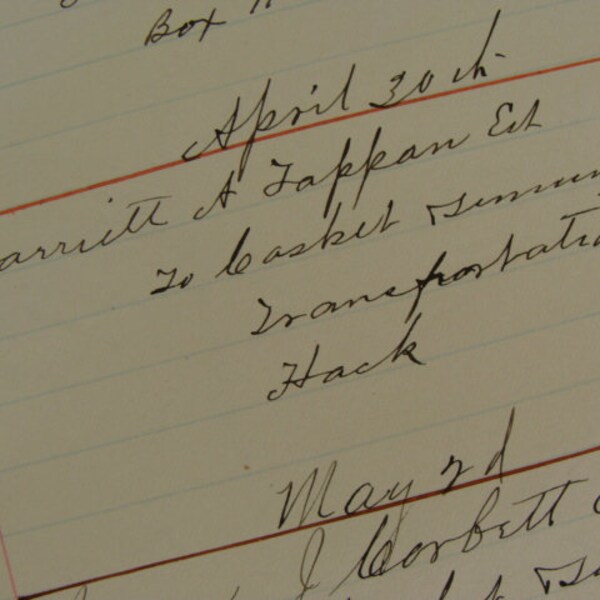 Box
April 30th
arriett A Tappan Est
To Casket &
Transportatio
Hack
May 2d
J Corbett